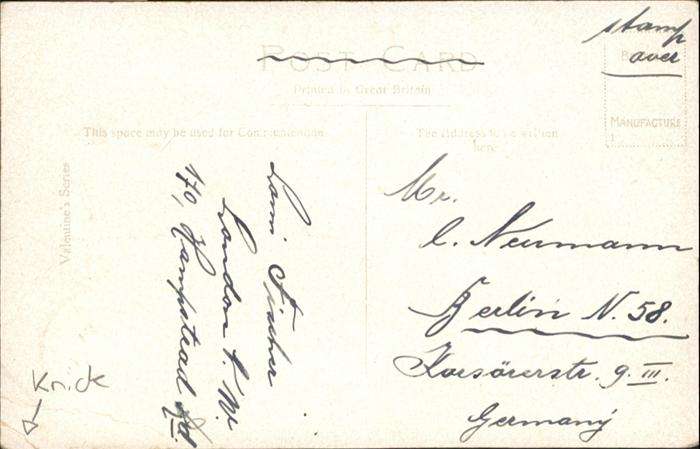 stamp
over
POST CARD
Printed in Great Britain
MANUFACTURE
This space may be used for Communication
The Address to be written
here
Valentine's Series
Fischer
London
170, Hampstead Rd
Mr.
C. Neumann
Berlin N. 58.
Korsörerstr. 9. III.
Germany
Knick